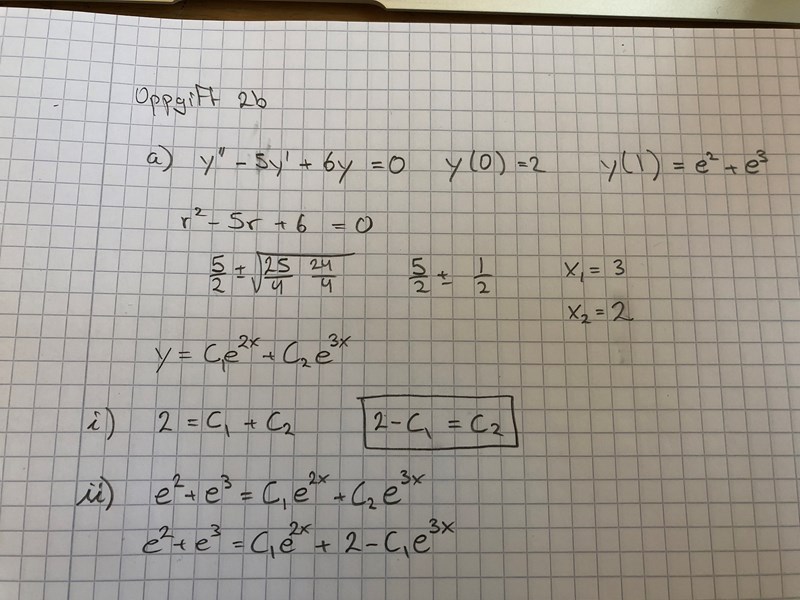 Oppgift 2b
a) y'' - 5y' + 6y = 0 y(0) = 2 y(1) = e² + e³
r² - 5r + 6 = 0
5/2 ± √(25/4 24/4) 5/2 ± 1/2 x₁ = 3
x₂ = 2
y = C₁e^{2x} + C₂e^{3x}
i) 2 = C₁ + C₂ 2 - C₁ = C₂
ii) e² + e³ = C₁e^{2x} + C₂e^{3x}
e² + e³ = C₁e^{2x} + 2 - C₁e^{3x}